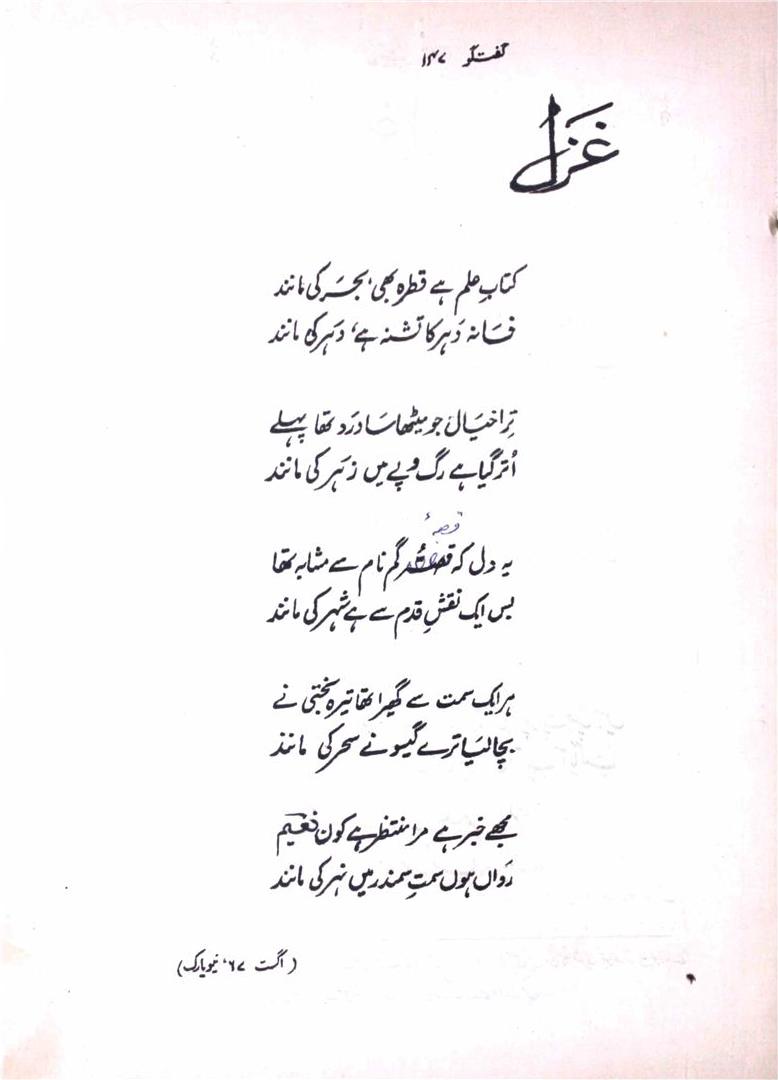 گفتگو ۱۴۷
غزل
کتابِ علم ہے قطرہ بھی، بحر کی مانند
فسانہ دہر کا تشنہ ہے، دہر کی مانند
ترا خیال جو میٹھا سا درد تھا پہلے
اُتر گیا ہے رگ و پے میں زہر کی مانند
قصۂ
یہ دل کہ گم نام سے مشابہ تھا
بس ایک نقشِ قدم سے ہے شہر کی مانند
ہر ایک سمت سے گھیرا تھا تیرہ بختی نے
بچا لیا ترے گیسو نے سحر کی مانند
مجھے خبر ہے مرا منتظر ہے کون نعیم
رواں ہوں سمتِ سمندر میں نہر کی مانند
(اگست ۶۷ء نیویارک)